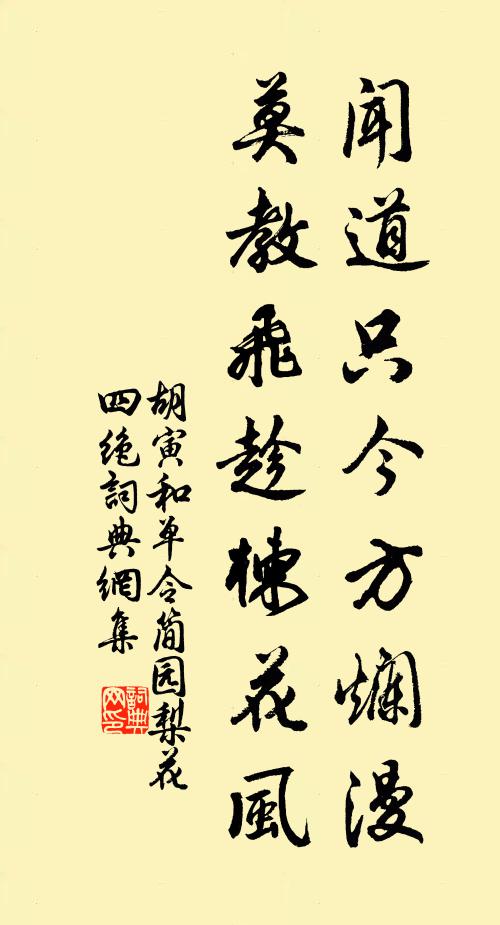 闻道只今方爛漫
莫教飛趁楝花風
胡寅和单令简园梨花
四绝詞典網集
詞典网印